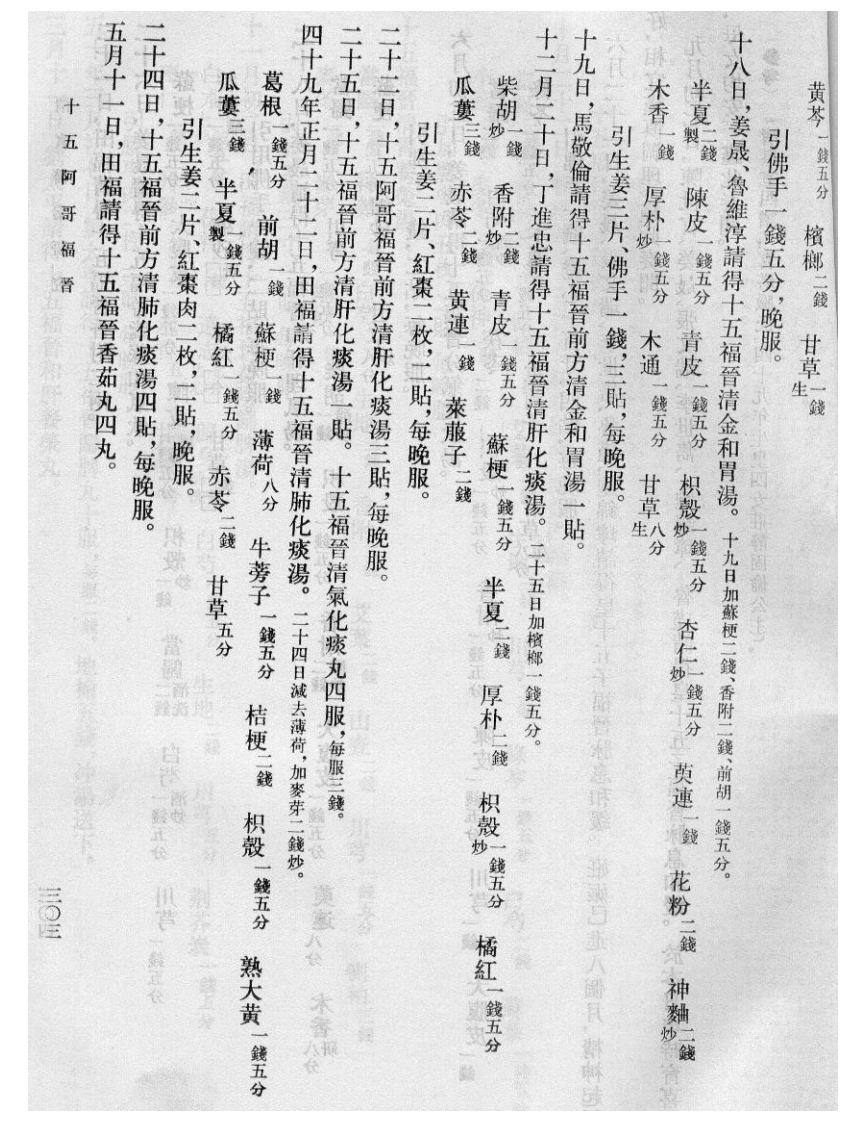 黄芩一錢五分　檳榔二錢　甘草生一錢
引佛手一錢五分，晚服。
十八日，姜晟、魯維淳請得十五福晉清金和胃湯。十九日加蘇梗二錢、香附二錢、前胡一錢五分。
半夏製二錢　陳皮一錢五分　青皮一錢五分　枳殼炒一錢五分　杏仁炒一錢五分　萸連一錢　花粉二錢　神麯炒二錢
木香一錢　厚朴炒一錢五分　木通一錢五分　甘草生八分
引生姜三片、佛手一錢，三貼，每晚服。
十九日，馬敬倫請得十五福晉前方清金和胃湯一貼。
十二月二十日，丁進忠請得十五福晉清肝化痰湯。二十五日加檳榔一錢五分。
柴胡炒一錢　香附炒二錢　青皮一錢五分　蘇梗一錢五分　半夏二錢　厚朴二錢　枳殼炒一錢五分　橘紅一錢五分
瓜蔞三錢　赤苓二錢　黄連一錢　萊菔子二錢
引生姜二片、紅棗二枚，二貼，每晚服。
二十二日，十五阿哥福晉前方清肝化痰湯三貼，每晚服。
二十五日，十五福晉前方清肝化痰湯一貼。十五福晉清氣化痰丸四服，每服三錢。
四十九年正月二十二日，田福請得十五福晉清肺化痰湯。二十四日減去薄荷，加麥芽二錢炒。
葛根一錢五分　前胡一錢　蘇梗一錢　薄荷八分　牛蒡子一錢五分　桔梗二錢　枳殼一錢五分　熟大黄一錢五分
瓜蔞三錢　半夏製一錢五分　橘紅一錢五分　赤苓二錢　甘草五分
引生姜二片、紅棗肉二枚，二貼，晚服。
二十四日，十五福晉前方清肺化痰湯四貼，每晚服。
五月十一日，田福請得十五福晉香茹丸四丸。
十五阿哥福晉
三〇三